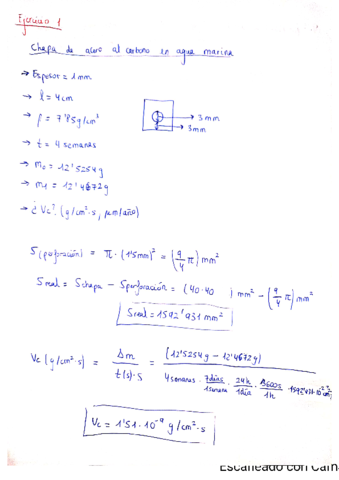 Ejercicio 1
Chapa de acero al carbono en agua marina
→ Espesor = 1 mm
→ l = 4 cm
→ ρ = 7'85 g/cm³
→ t = 4 semanas
→ m₀ = 12'5254 g
→ m₁ = 12'4672 g
→ ¿ Vc? (g/cm²·s, μm/año)
→ 3 mm
→ 3 mm
S (perforación) = π · (1'5 mm)² = (9/4 π) mm²
S real = S chapa - S perforación = (40·40) mm² - (9/4 π) mm²
S real = 1592'931 mm²
Vc (g/cm²·s) = Δm / t(s)·S = (12'5254 g - 12'4672 g) / 4 semanas · 7 días/1 semana · 24h/1 día · 3600s/1h ·
Vc = 1'51 · 10⁻⁹ g/cm²·s
Escaneado con Cam